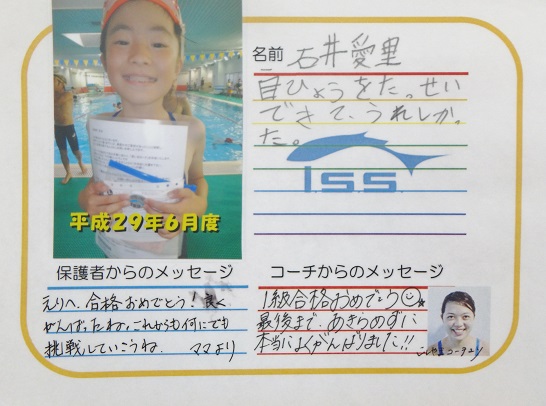 名前 石井愛里
目ひょうをたっせい
できて、うれしかっ
た。
ISS
平成29年6月度
保護者からのメッセージ
えりへ、合格おめでとう！良く
がんばったね。これからも何にでも
挑戦していこうね。 ママより
コーチからのメッセージ
1級合格おめでとう
最後まで、あきらめずに
本当によくがんばりました!!
コーチより